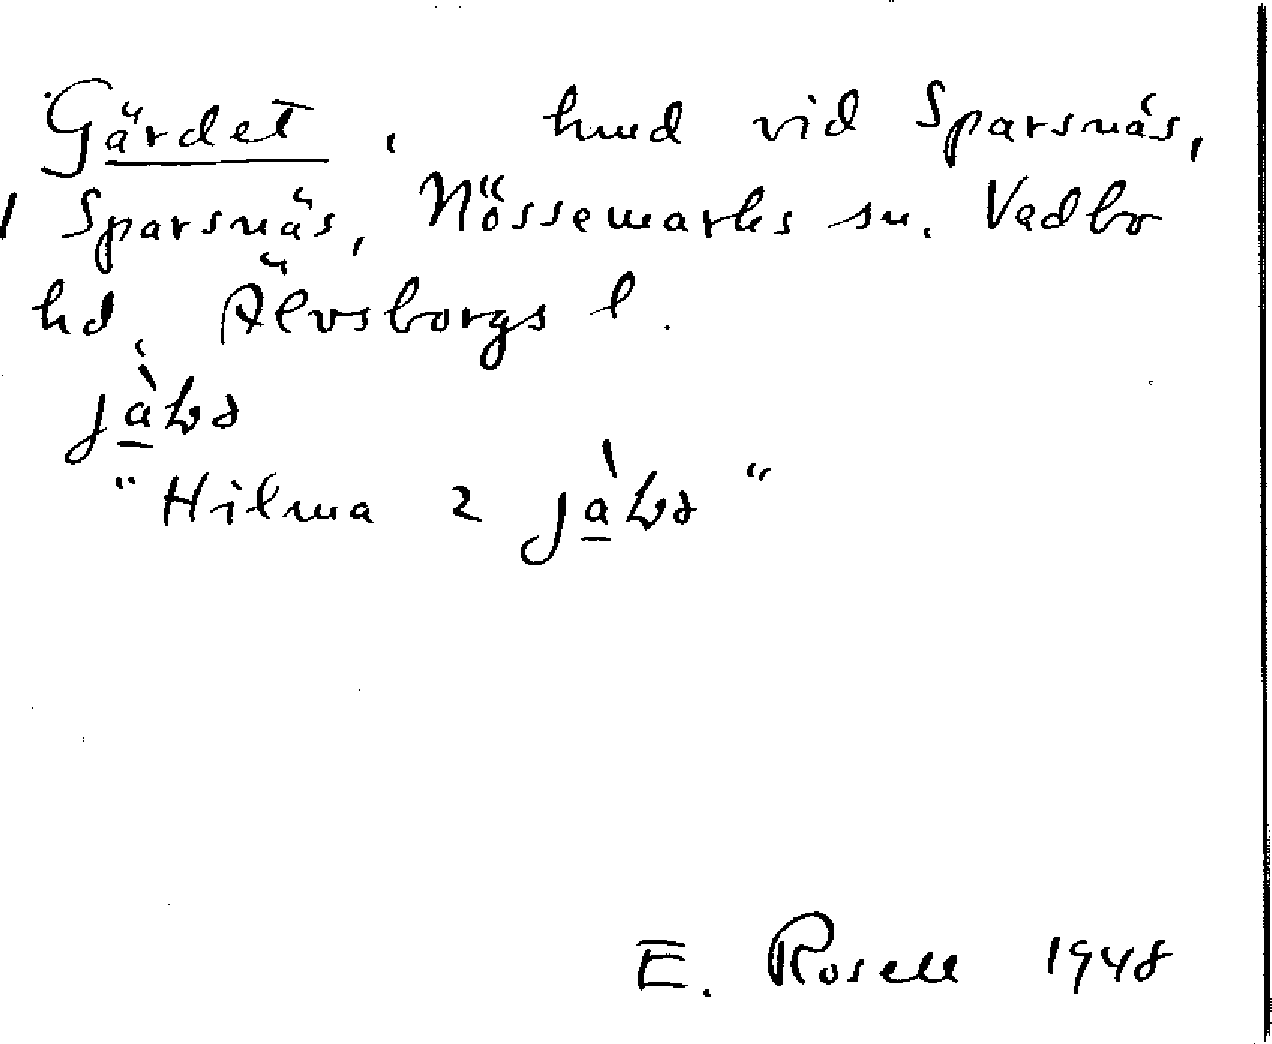 Gärdet, hmd vid Sparsnäs,
1 Sparsnäs, Nössemarks sn. Vedbo
hd, Älvsborgs l.
"Hilma
E. Rosell 1948